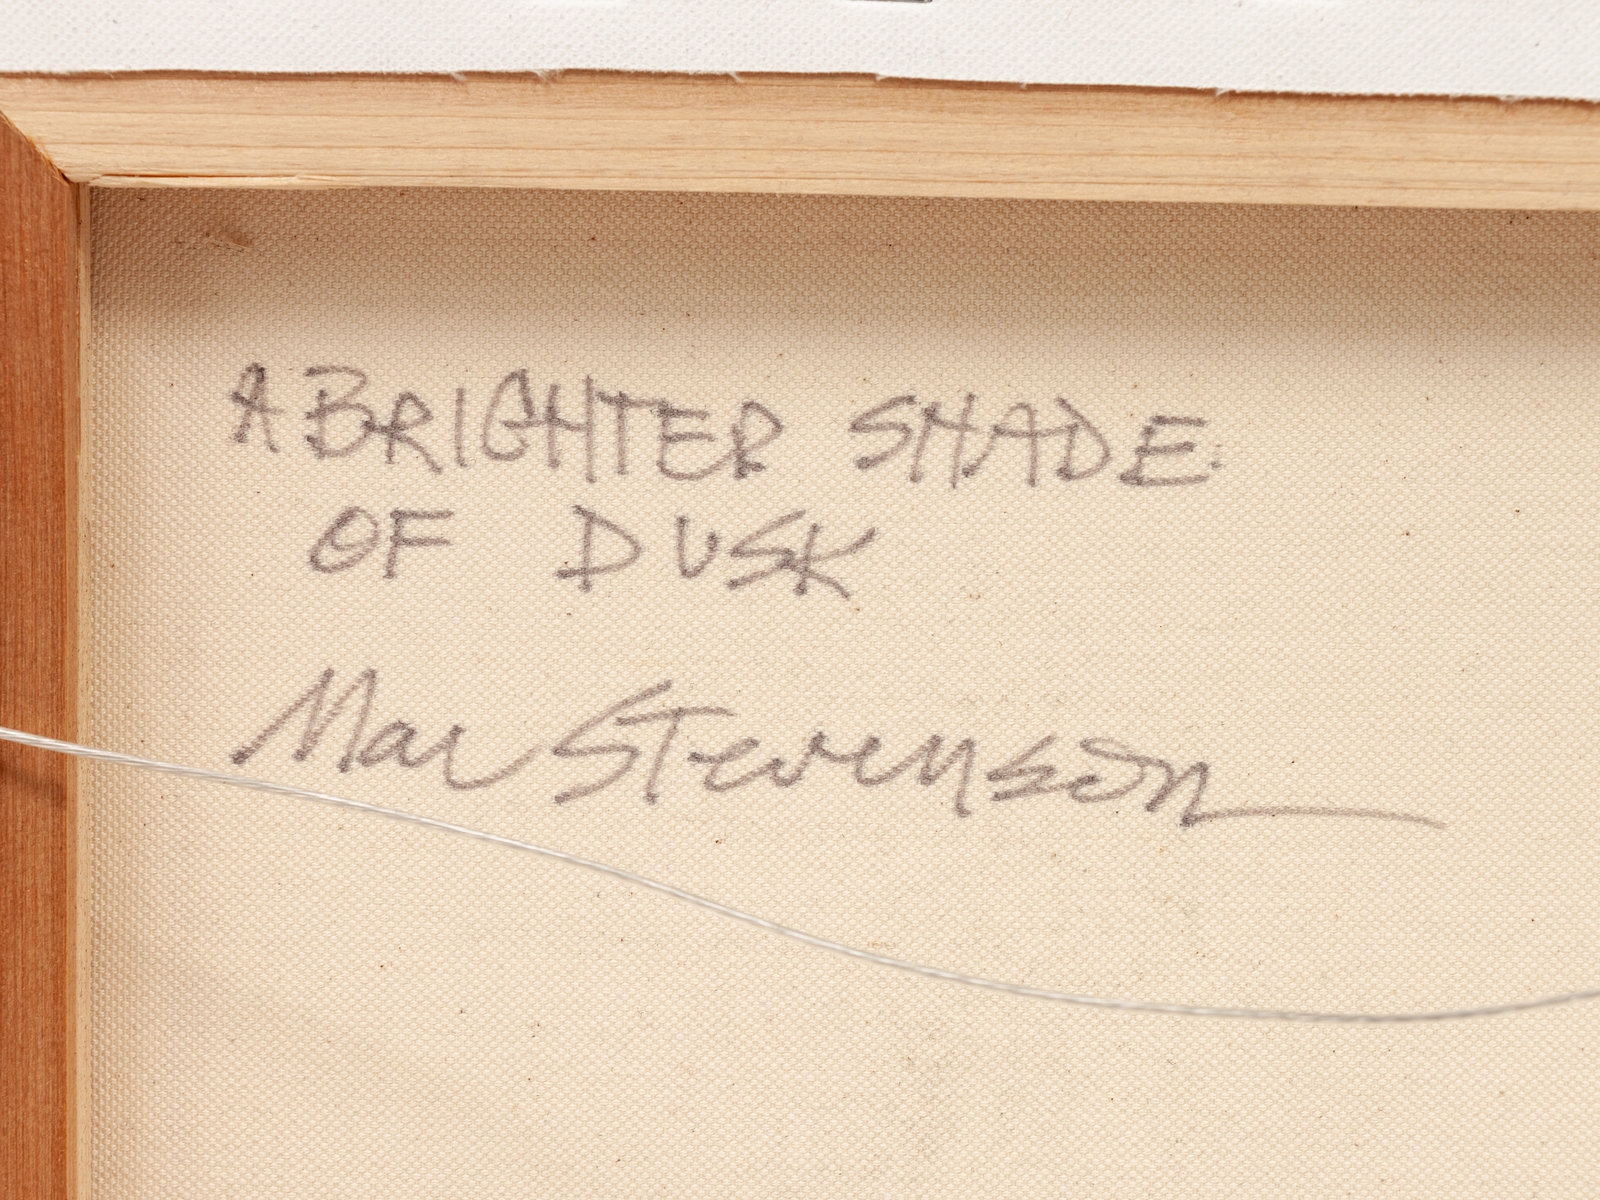 A BRIGHTER SHADE
OF DUSK
Mac Stevenson